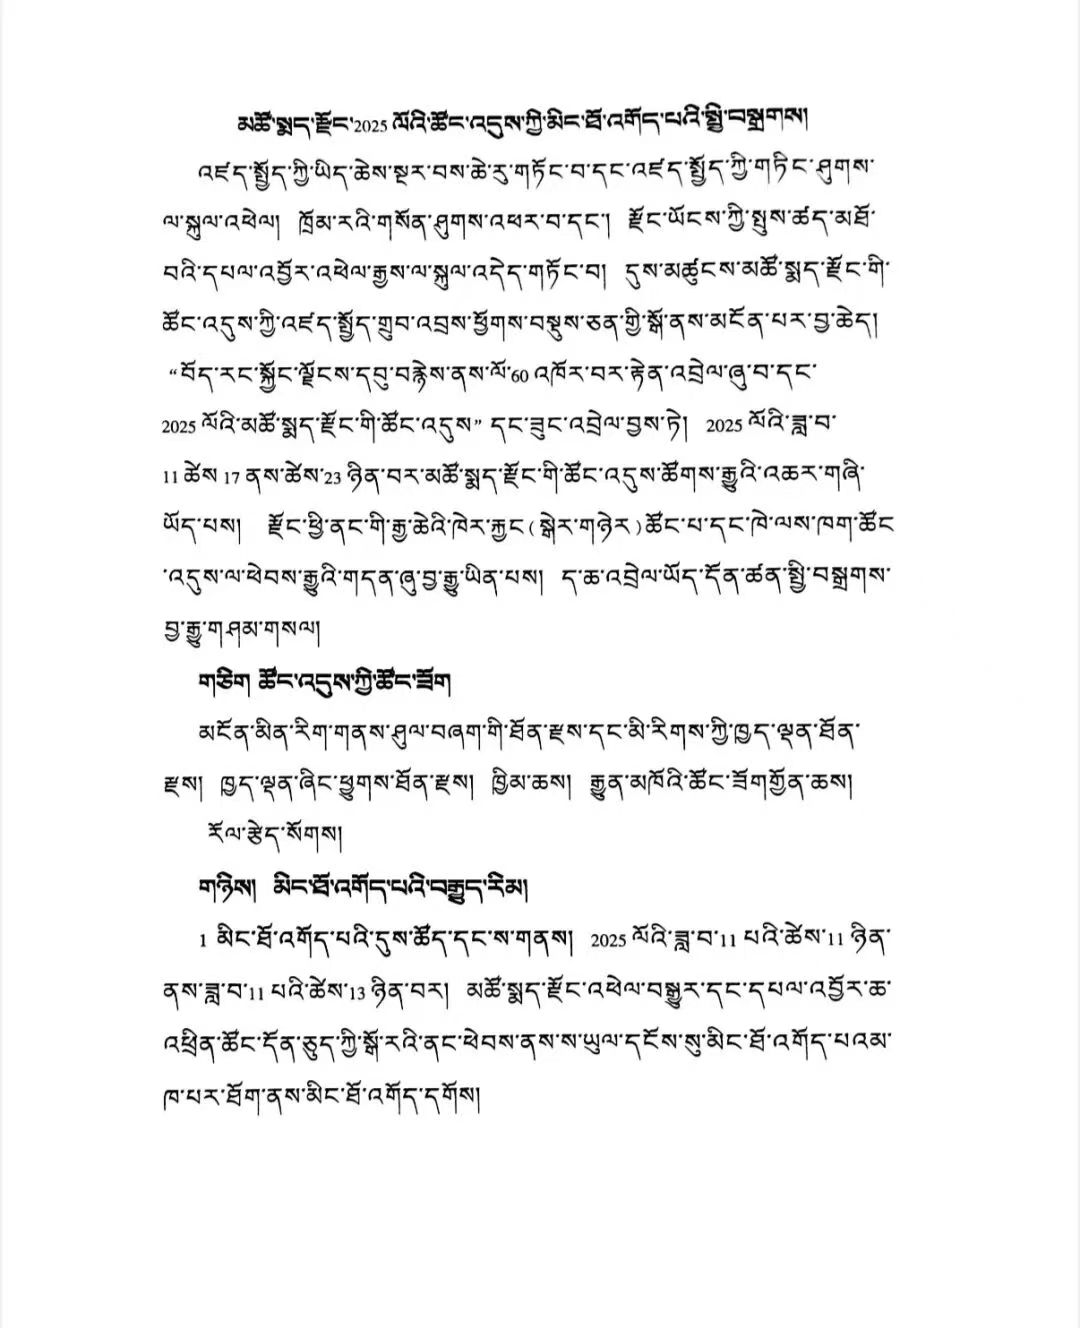 མཚོ་སྨད་རྫོང་2025 ལོའི་ཚོང་འདུས་ཀྱི་མིང་ཐོ་འགོད་པའི་སྤྱི་བསྒྲགས།
འཛད་སྤྱོད་ཀྱི་ཡིད་ཆེས་སྔར་བས་ཆེ་རུ་གཏོང་བ་དང་འཛད་སྤྱོད་ཀྱི་གཏིང་ཤུགས་
ལ་སྐུལ་འཕེལ། ཁྲོམ་རའི་གསོན་ཤུགས་འཕར་བ་དང་། རྫོང་ཡོངས་ཀྱི་སྤུས་ཚད་མཐོ་
བའི་དཔལ་འབྱོར་འཕེལ་རྒྱས་ལ་སྐུལ་འདེད་གཏོང་བ། དུས་མཚུངས་མཚོ་སྨད་རྫོང་གི་
ཚོང་འདུས་ཀྱི་འཛད་སྤྱོད་གྲུབ་འབྲས་ཕྱོགས་བསྡུས་ཅན་གྱི་སྒོ་ནས་མངོན་པར་བྱ་ཆེད།
“བོད་རང་སྐྱོང་ལྗོངས་དབུ་བརྙེས་ནས་ལོ་60 འཁོར་བར་རྟེན་འབྲེལ་ཞུ་བ་དང་
2025 ལོའི་མཚོ་སྨད་རྫོང་གི་ཚོང་འདུས” དང་ཟུང་འབྲེལ་བྱས་ཏེ། 2025 ལོའི་ཟླ་བ་
11 ཚེས 17 ནས་ཚེས་23 ཉིན་བར་མཚོ་སྨད་རྫོང་གི་ཚོང་འདུས་ཚོགས་རྒྱུའི་འཆར་གཞི་
ཡོད་པས། རྫོང་ཕྱི་ནང་གི་རྒྱ་ཆེའི་ཁེར་རྐྱང(སྒེར་གཉེར)ཚོང་པ་དང་ཁེ་ལས་ཁག་ཚོང
་འདུས་ལ་ཕེབས་རྒྱུའི་གདན་ཞུ་བྱ་རྒྱུ་ཡིན་པས། ད་ཆ་འབྲེལ་ཡོད་དོན་ཚན་སྤྱི་བསྒྲགས་
བྱ་རྒྱུ་གཤམ་གསལ།
གཅིག ཚོང་འདུས་ཀྱི་ཚོང་ཟོག
མངོན་མིན་རིག་གནས་ཤུལ་བཞག་གི་ཐོན་རྫས་དང་མི་རིགས་ཀྱི་ཁྱད་ལྡན་ཐོན་
རྫས། ཁྱད་ལྡན་ཞིང་ཕྱུགས་ཐོན་རྫས། ཁྱིམ་ཆས། རྒྱུན་མཁོའི་ཚོང་ཟོགགྱོན་ཆས།
རོལ་རྩེད་སོགས།
གཉིས། མིང་ཐོ་འགོད་པའི་བརྒྱུད་རིམ།
1 མིང་ཐོ་འགོད་པའི་དུས་ཚོད་དང་ས་གནས། 2025 ལོའི་ཟླ་བ་11 པའི་ཚེས་11 ཉིན་
ནས་ཟླ་བ་11 པའི་ཚེས་13 ཉིན་བར། མཚོ་སྨད་རྫོང་འཕེལ་བསྒྱུར་དང་དཔལ་འབྱོར་ཆ་
འཕྲིན་ཚོང་དོན་ཅུད་ཀྱི་སྒོ་རའི་ནང་ཕེབས་ནས་ས་ཡུལ་དངོས་སུ་མིང་ཐོ་འགོད་པའམ་
ཁ་པར་ཐོག་ནས་མིང་ཐོ་འགོད་དགོས།